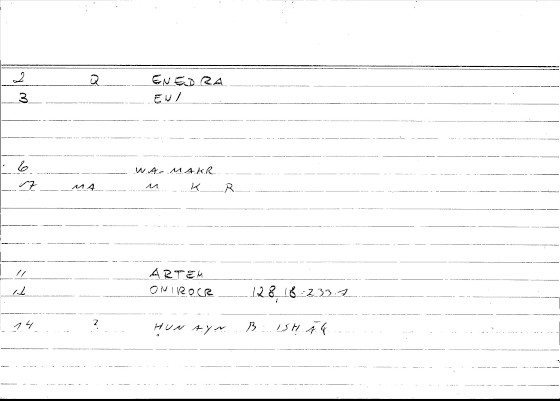 2 Q ENEDRA
3 EU/
6 WA-MAKR
17 MA M K R
11 ARTEM
12 ONIROCR 128,18-233.1
14 ? ḤUNAYN B ISḤĀQ